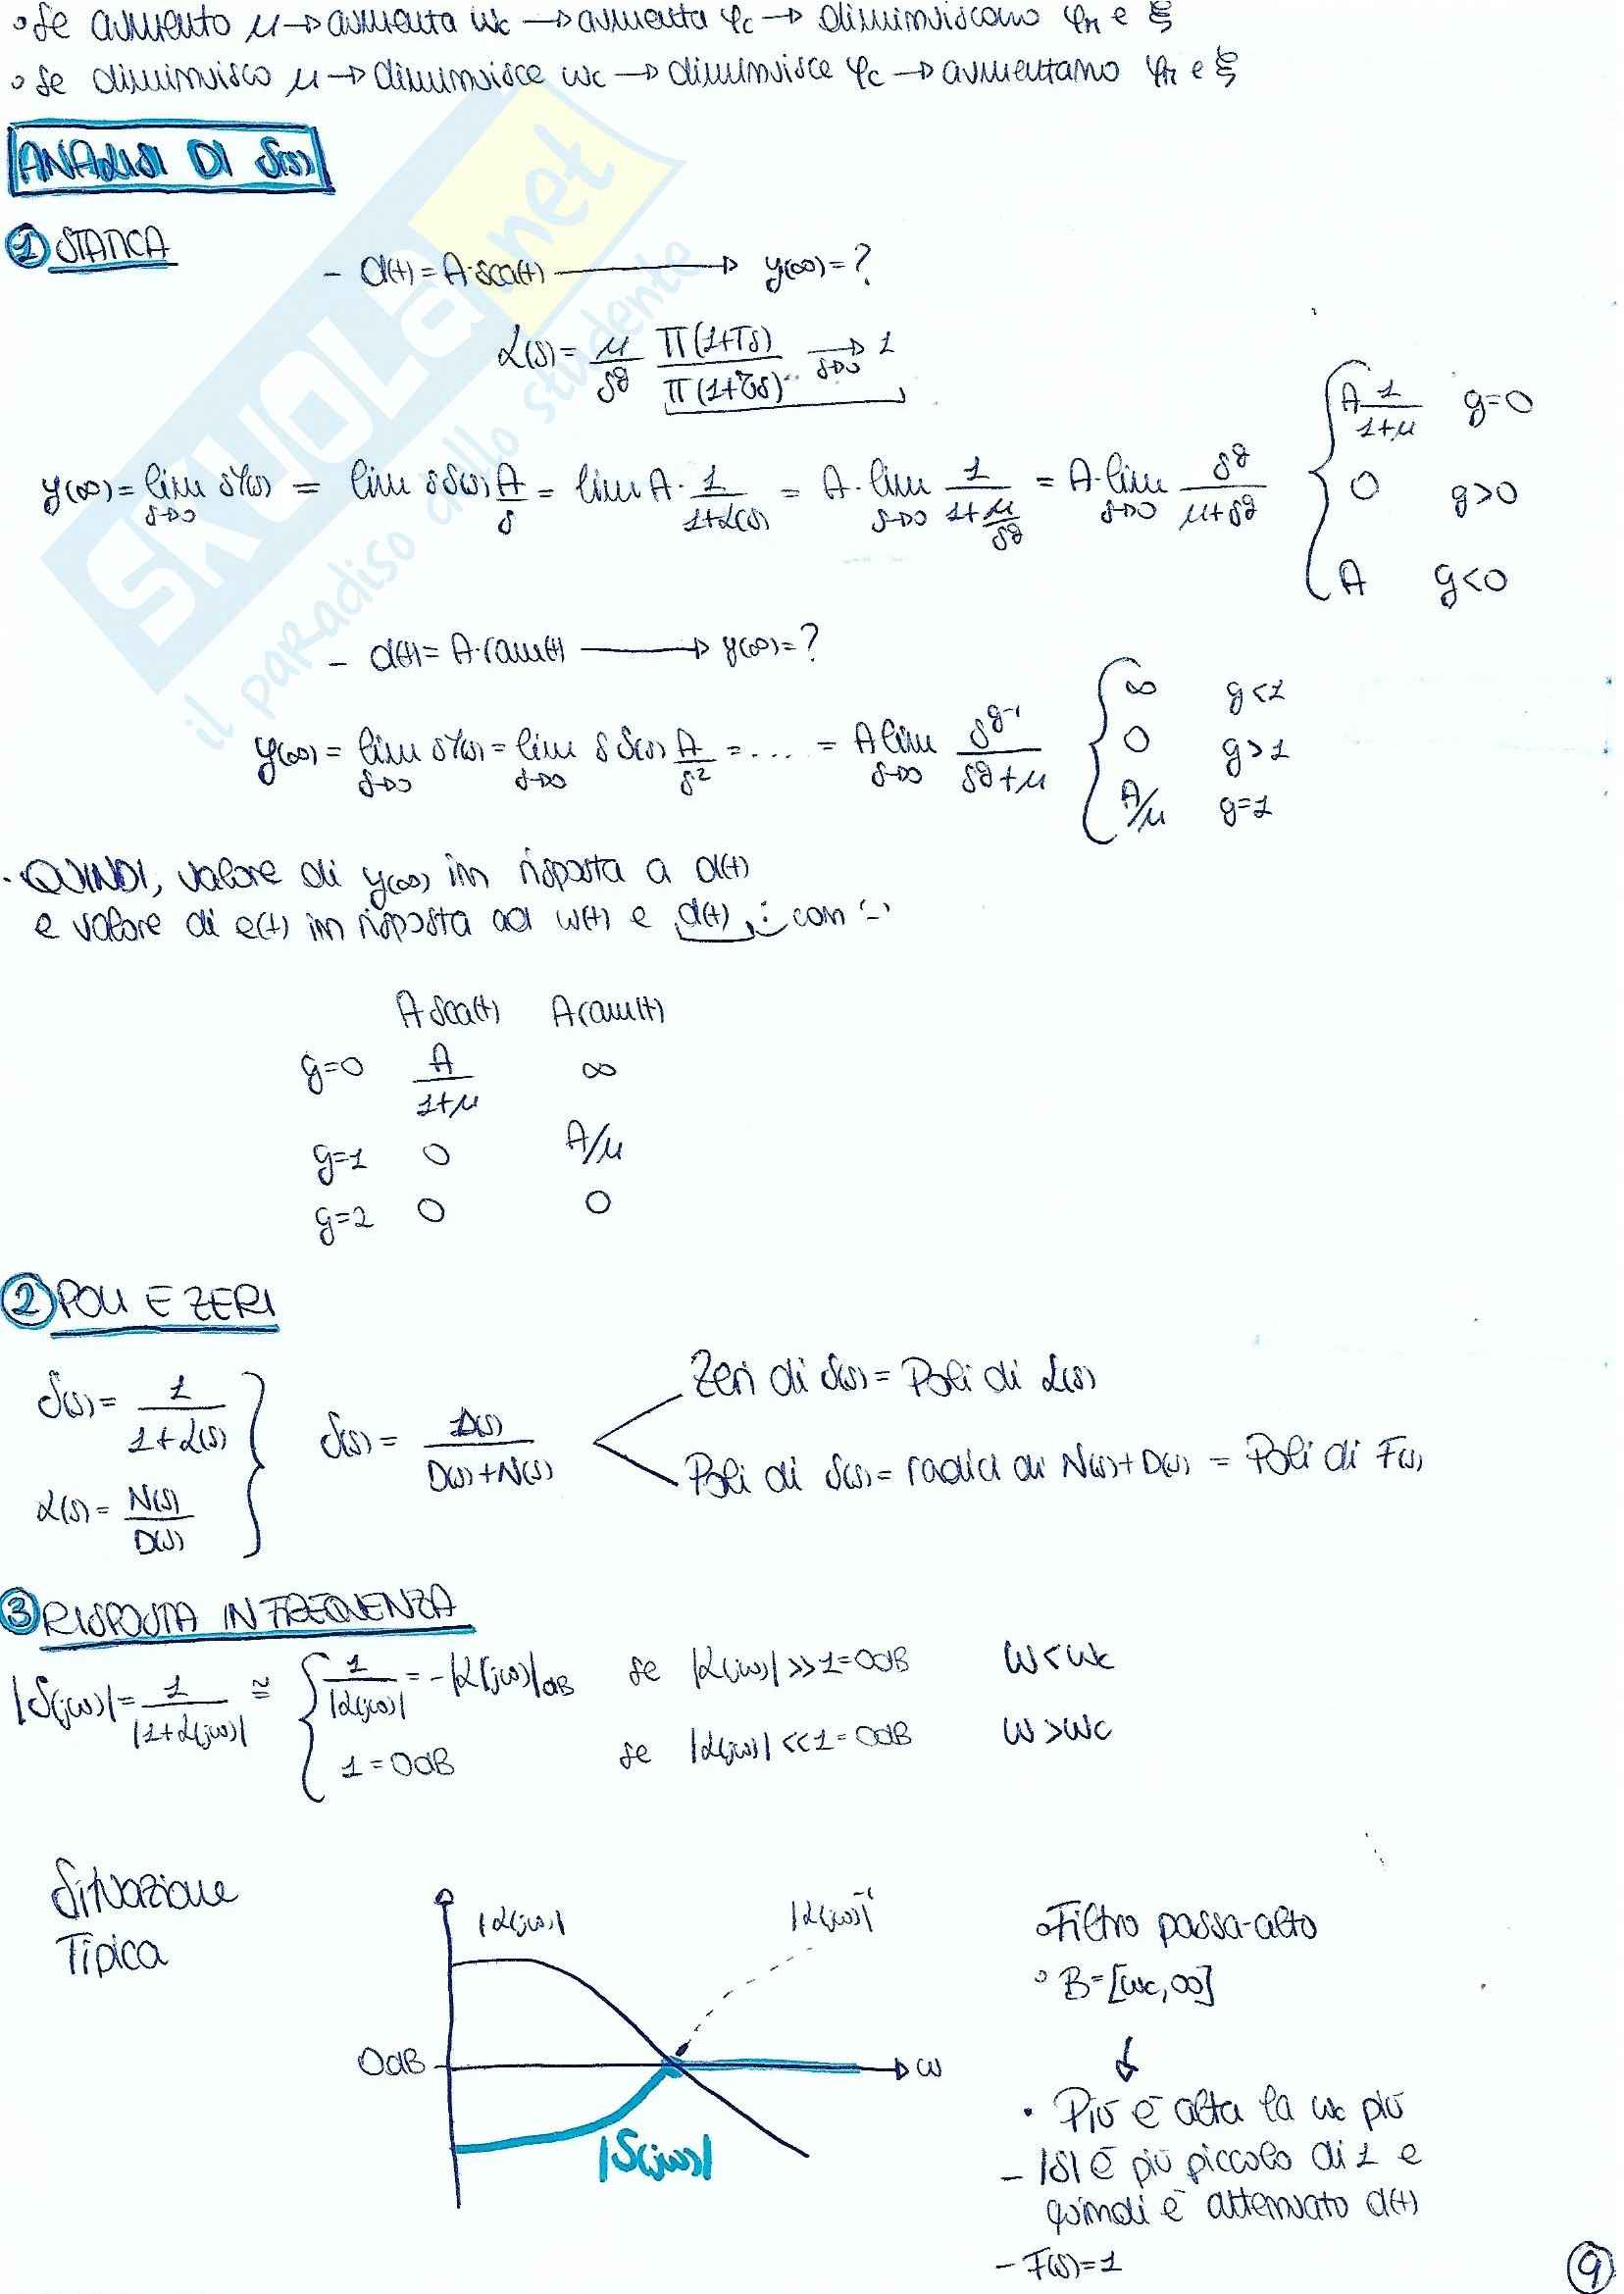 ∘ Se aumento μ → aumenta ωc → aumenta φc → diminuiscono φm e ξ
∘ Se diminuisco μ → diminuisce ωc → diminuisce φc → aumentano φm e ξ
ANALISI DI S(s)
① STATICA
- d(t) = A·sca(t) → y(∞) = ?
L(s) = μ/s^g · Π(1+Ts)/Π(1+τs) →(s→0) 1
y(∞) = lim s→0 sY(s) = lim sS(s) A/s = lim A · 1/(1+L(s)) = A · lim s→0 1/(1+μ/s^g) = A · lim s→0 s^g/(μ+s^g) { A 1/(1+μ) g=0
0 g>0
A g<0
- d(t) = A·ram(t) → y(∞) = ?
y(∞) = lim s→0 sY(s) = lim s→0 s S(s) A/s² = .... = A lim s→0 s^(g-1)/(s^g+μ) { ∞ g<1
0 g>1
A/μ g=1
· QUINDI, valore di y(∞) in risposta a d(t)
e valore di e(t) in risposta ad w(t) e d(t) : con '-'
A sca(t) A ram(t)
g=0 A/(1+μ) ∞
g=1 0 A/μ
g=2 0 0
② POLI E ZERI
S(s) = 1/(1+L(s))
L(s) = N(s)/D(s)
} S(s) = D(s)/(D(s)+N(s))
Zeri di S(s) = Poli di L(s)
Poli di S(s) = radici di N(s)+D(s) = Poli di F(s)
③ RISPOSTA IN FREQUENZA
|S(jω)| = 1/|1+L(jω)| ≅ { 1/|L(jω)| = -|L(jω)|dB se |L(jω)| >> 1 = 0dB ω < ωc
1 = 0dB se |L(jω)| << 1 = 0dB ω > ωc
Situazione
Tipica
|L(jω)|
|L(jω)|⁻¹
0dB
ω
|S(jω)|
∘ Filtro passa-alto
∘ B = [ωc, ∞]
↓
· Più è alta la ωc più
- |S| è più piccolo di 1 e
quindi è attenuato d(t)
- F(s) = 1
9
SKUOLA.net
il paradiso dello studente